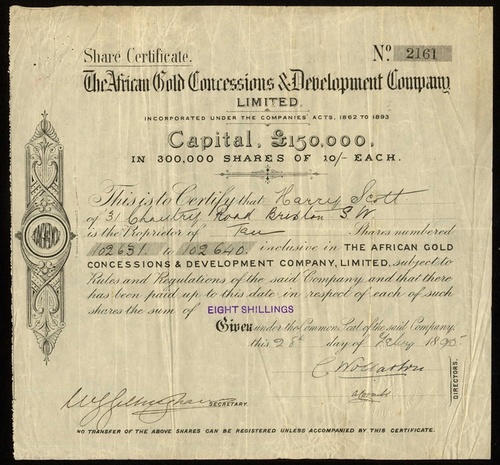 Share Certificate.
No. 2161
The African Gold Concessions & Development Company
LIMITED.
INCORPORATED UNDER THE COMPANIES' ACTS, 1862 TO 1893
Capital, £150,000,
IN 300,000 SHARES OF 10/- EACH.
This is to Certify that Harry Scott
of 31 Road Brixton S W
is the Proprietor of Ten Shares numbered
102631 to 102640 inclusive in THE AFRICAN GOLD
CONCESSIONS & DEVELOPMENT COMPANY, LIMITED, subject to
Rules and Regulations of the said Company and that there
has been paid up to this date in respect of each of such
shares the sum of EIGHT SHILLINGS
Given under the Common Seal of the said Company,
this 28th day of 1895
DIRECTORS.
SECRETARY.
NO TRANSFER OF THE ABOVE SHARES CAN BE REGISTERED UNLESS ACCOMPANIED BY THIS CERTIFICATE.